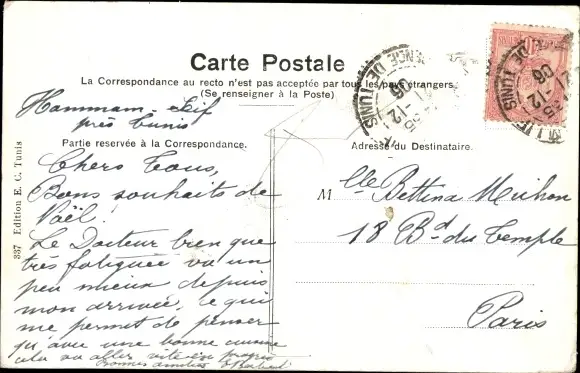 Carte Postale
La Correspondance au recto n'est pas acceptée par tous les pays étrangers.
(Se renseigner à la Poste)
Hammam-Lif
près Tunis
Partie reservée à la Correspondance.
Adresse du Destinataire.
Chers Tous,
Bons souhaits de
Noël!
Le Docteur bien que
très fatiguée va un
peu mieux depuis
mon arrivée, ce qui
me permet de penser
qu'avec une bonne cuisine
cela va aller vite en
Bonnes amitiés
Mlle Bettina Michon
18 Bd du Temple
Paris
337 Edition E. C. Tunis
DE TUNIS
12
06
DE TUNIS
12
06